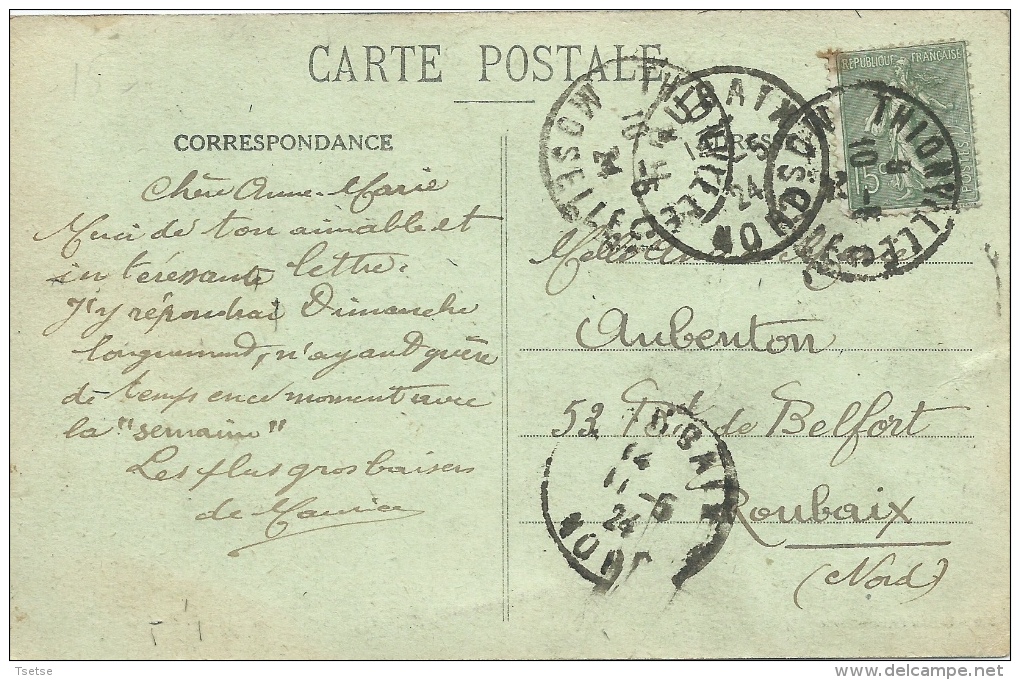 CARTE POSTALE
CORRESPONDANCE
Chère Anne-Marie
Merci de ton aimable et
intéressante lettre.
J'y répondrai Dimanche
longuement, n'ayant guère
de temps en ce moment avec
la "semaine"
Les plus gros baisers
de Maurice
REPUBLIQUE FRANÇAISE
15c
POSTES
THIONVILLE
MOSELLE
ROUBAIX
NORD
THIONVILLE
MOSELLE
Melle
Aubenton
53 de Belfort
Roubaix
(Nord)
ROUBAIX
14
11 -6
24
NORD
Tsetse
www.delcampe.net